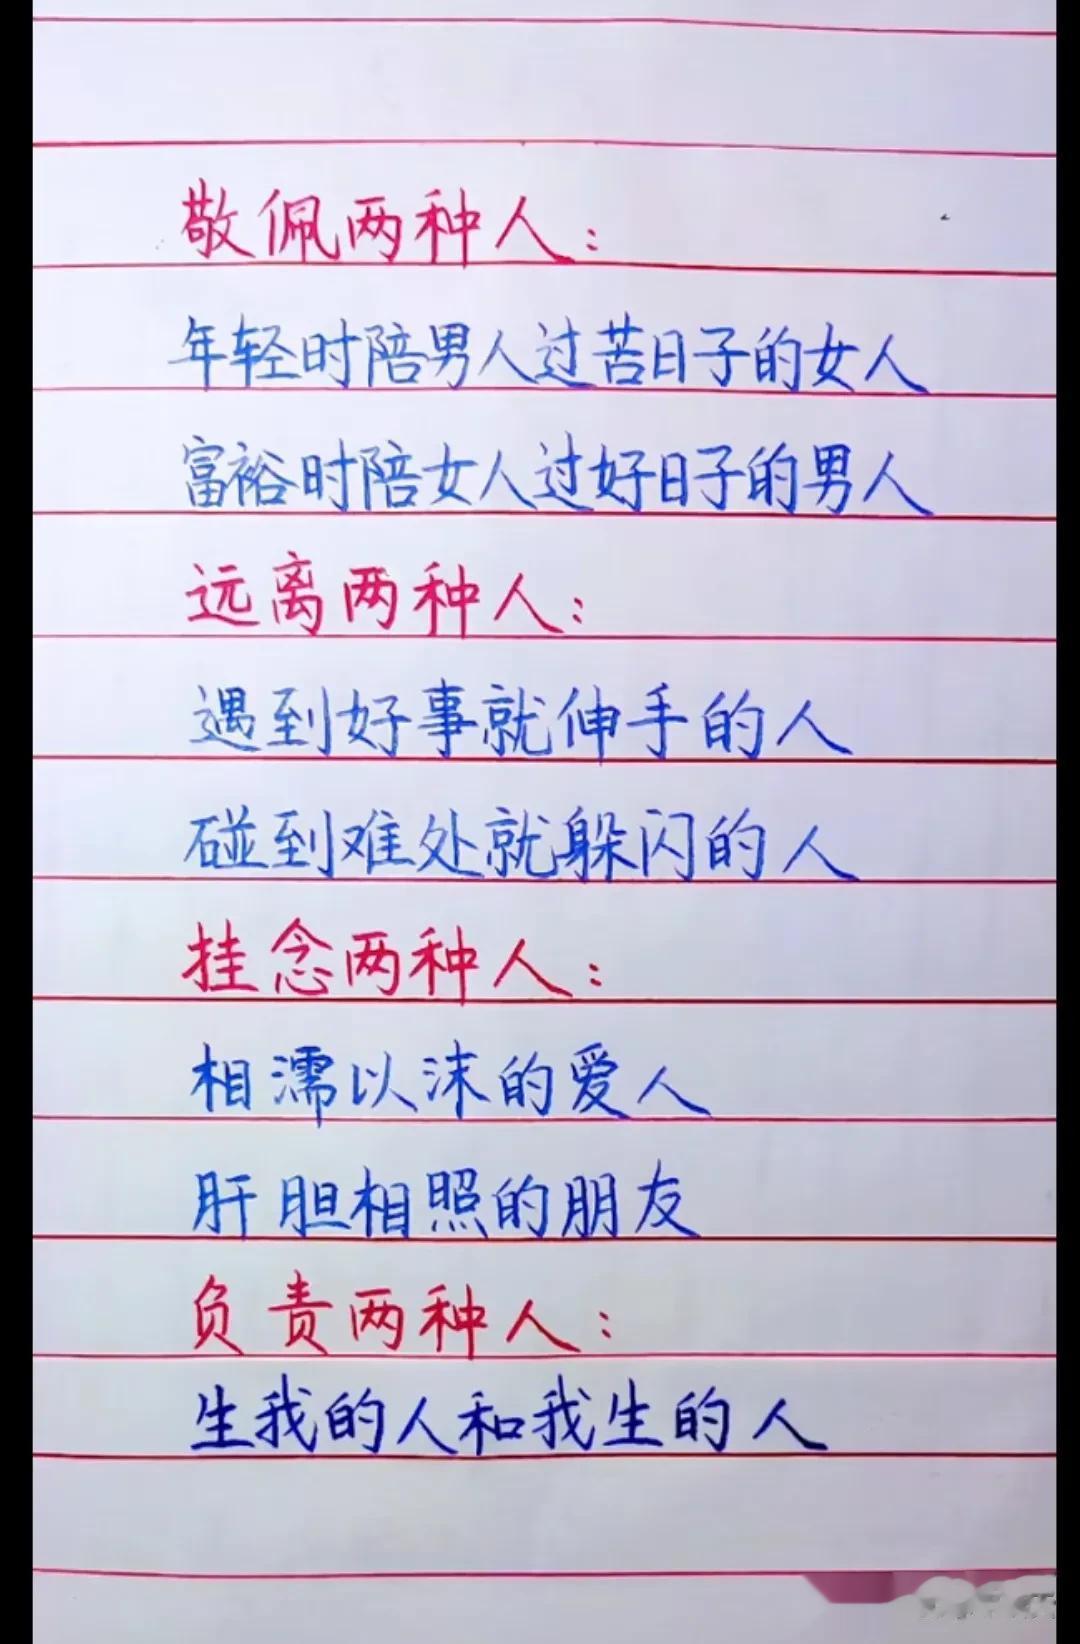 敬佩两种人：
年轻时陪男人过苦日子的女人
富裕时陪女人过好日子的男人
远离两种人：
遇到好事就伸手的人
碰到难处就躲闪的人
挂念两种人：
相濡以沫的爱人
肝胆相照的朋友
负责两种人：
生我的人和我生的人